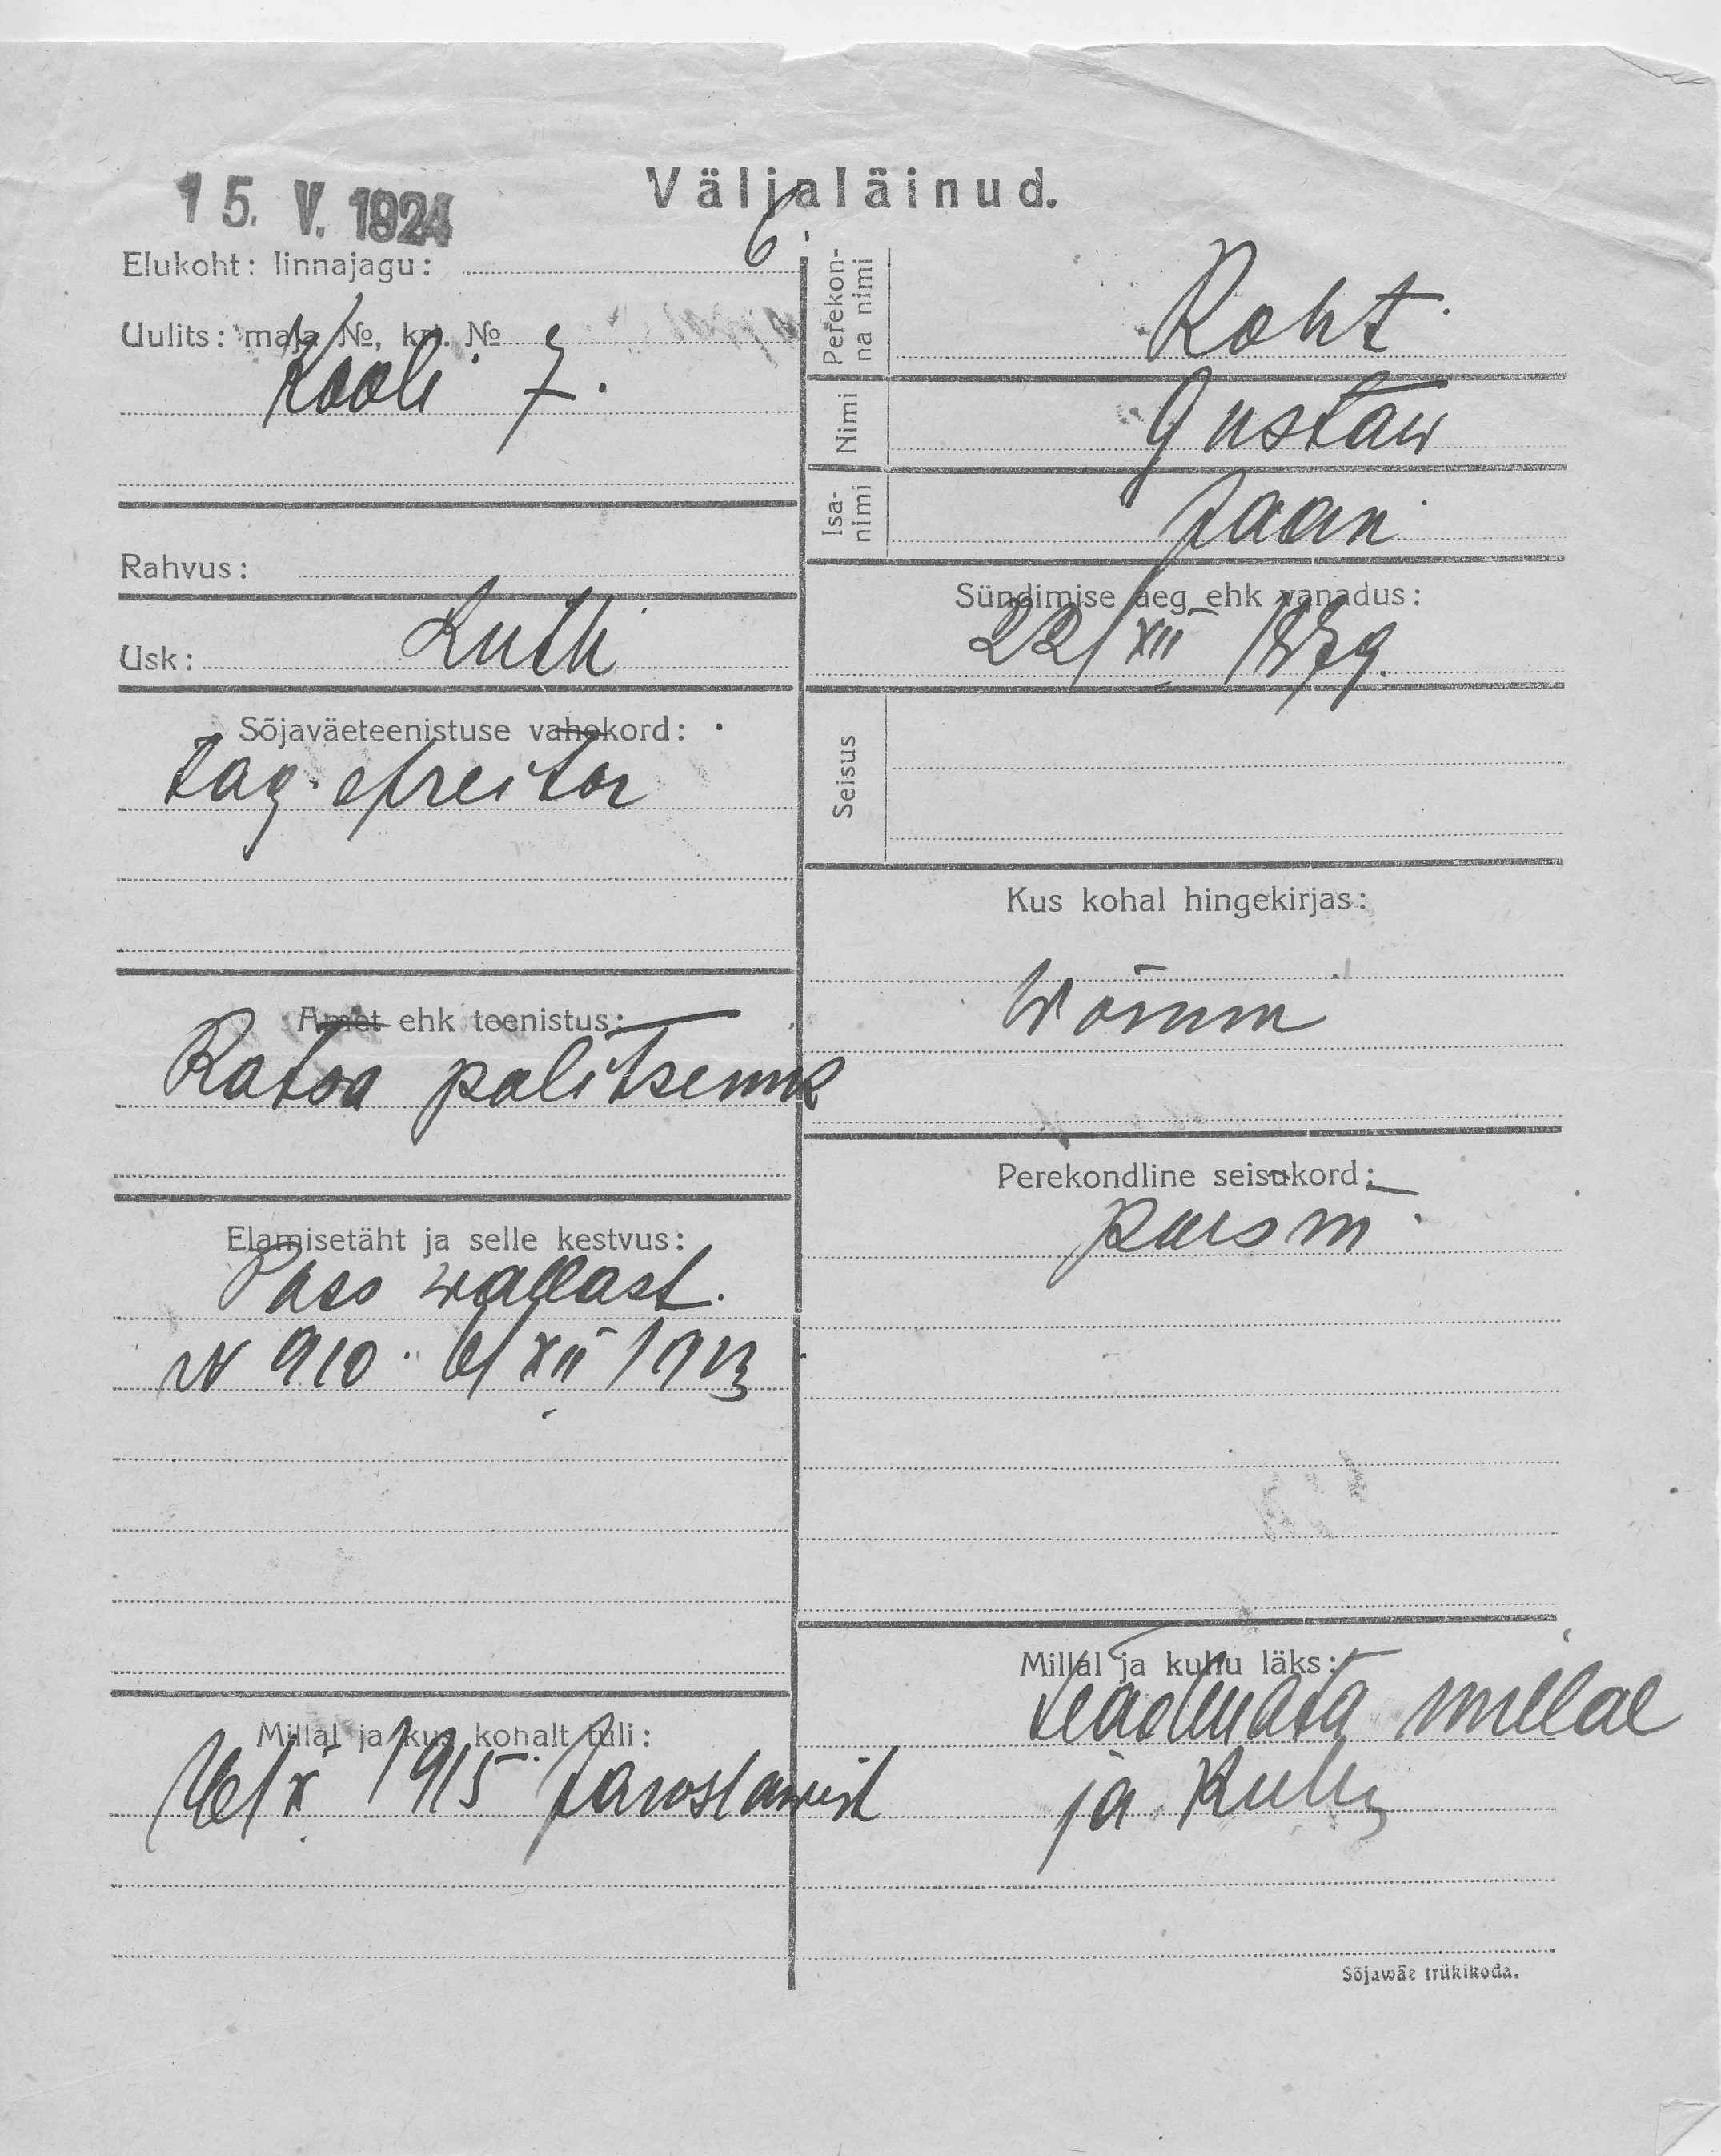 Väljaläinud.
15. V. 1924
Elukoht: linnajagu: 6.
Uulits: maja №, krt. №
Kooli 7.
Rahvus:
Usk: Luth
Sõjaväeteenistuse vahekord:
tag. efreitor
Amet ehk teenistus:
Ratsa politsenik
Elamisetäht ja selle kestvus:
Pass wallast.
N 910. 6/XII 1913
Millal ja kus kohalt tuli:
16/X 1915 Jaroslawist
Perekon-
na nimi
Roht
Nimi
Gustaw
Isa-
nimi
Jaan
Sündimise aeg ehk vanadus:
22/XII 1879.
Seisus
Kus kohal hingekirjas:
Perekondline seisukord:
Millal ja kuhu läks:
teadmata millal
ja kuhu
Sõjawäe trükikoda.